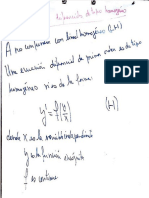 de tipo homogéneo
A no confundir con lineal homogéneo (LH)
Una ecuación diferencial de primer orden es de tipo
homogéneo si es de la forma:
y' = f(y/x) (H)
donde x es la variable independiente
y es la función incógnita
f es continua